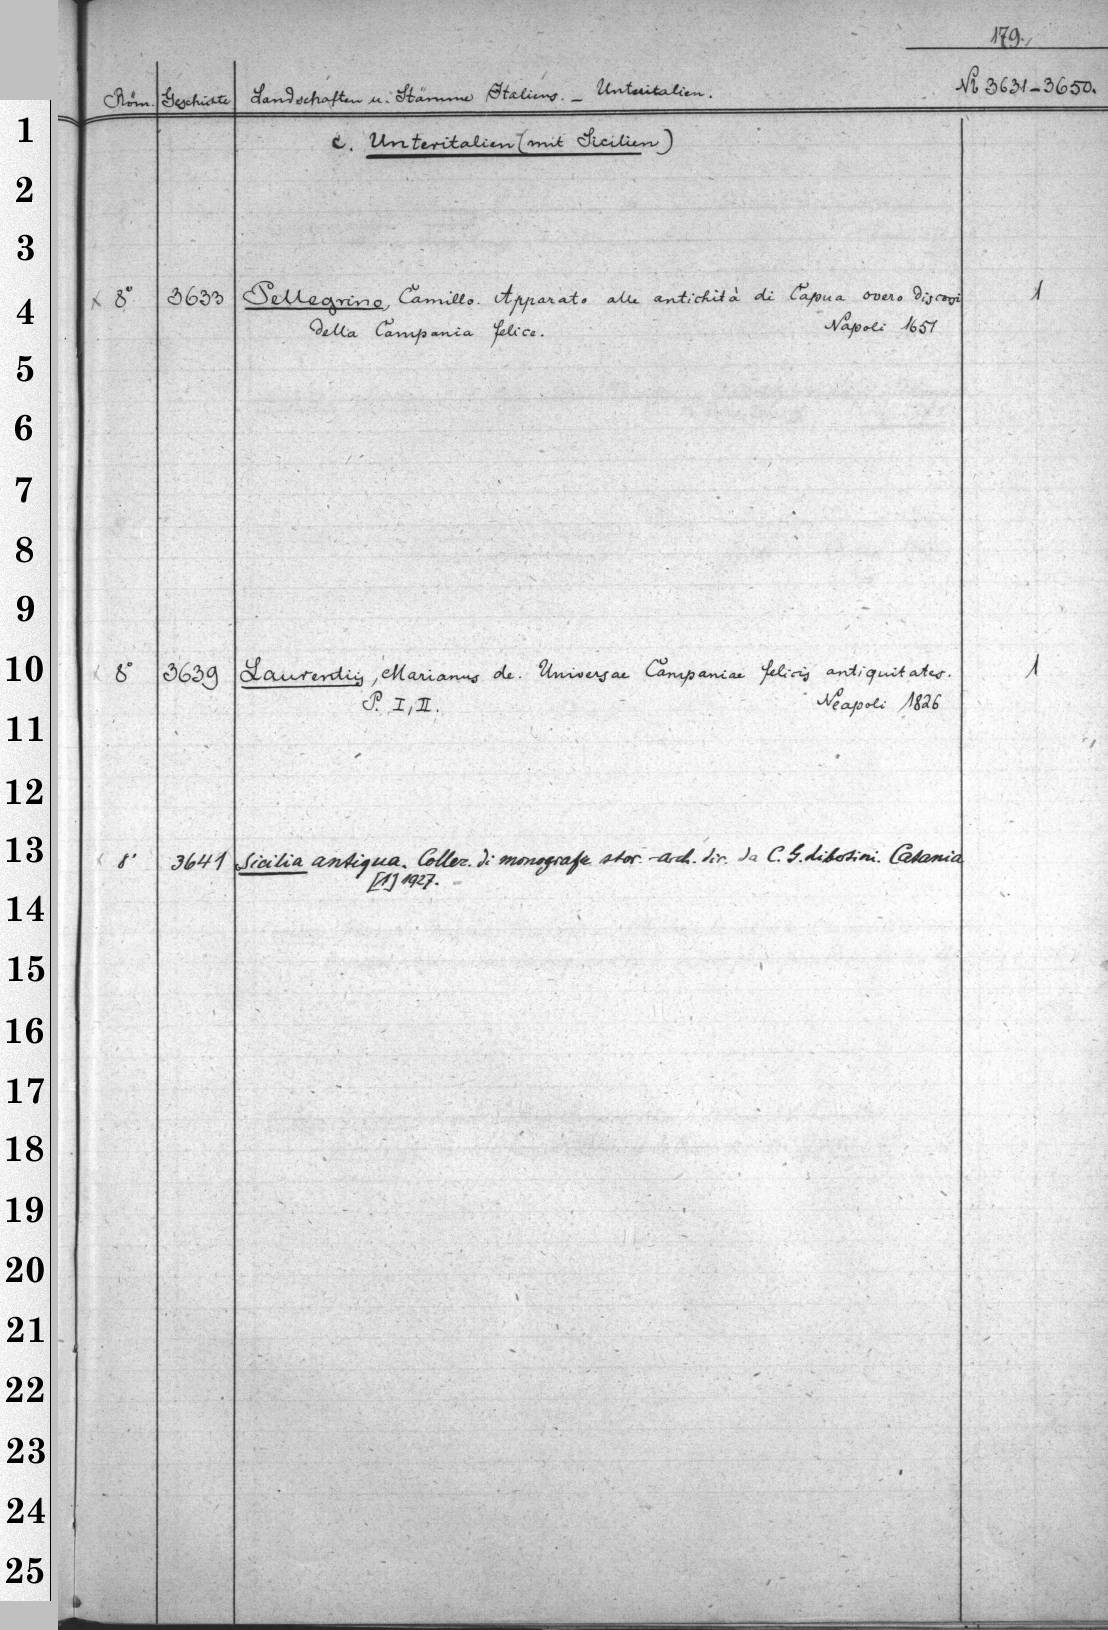 179.
Röm. Geschichte Landschaften u. Stämme Italiens. – Unteritalien. № 3631–3650.
1
c. Unteritalien (mit Sicilien)
2
3
4
x 8° 3633 Pellegrino, Camillo. Apparato alle antichità di Capua overo discorsi 1
della Campania felice. Napoli 1651
5
6
7
8
9
10
8° 3639 Laurentiis, Marianus de. Universae Campaniae felicis antiquitates. 1
P. I, II. Neapoli 1826
11
12
13
8° 3641 Sicilia antiqua. Collez. di monografie stor.-arch. dir. da C. G. Libertini. Catania
[1] 1927. –
14
15
16
17
18
19
20
21
22
23
24
25